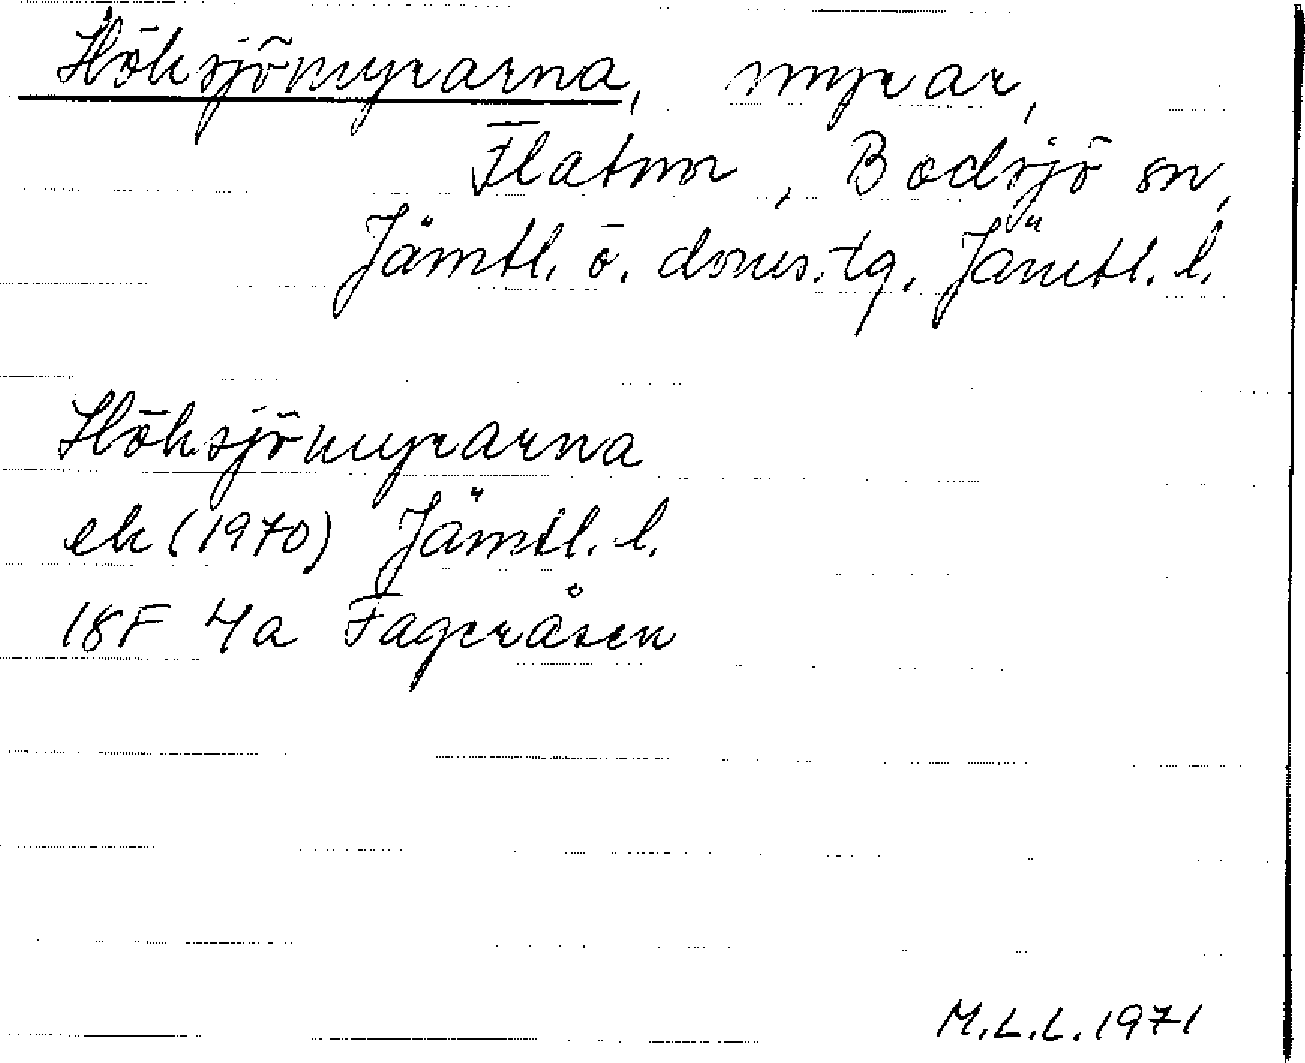 Höksjömyrarna, myrar,
Flatnor, Bodsjö sn,
Jämtl. ö. doms.tg, Jämtl. l.
Höksjömyrarna
ek (1970) Jämtl. l.
18F 4a Fageråsen
M.L.L. 1971